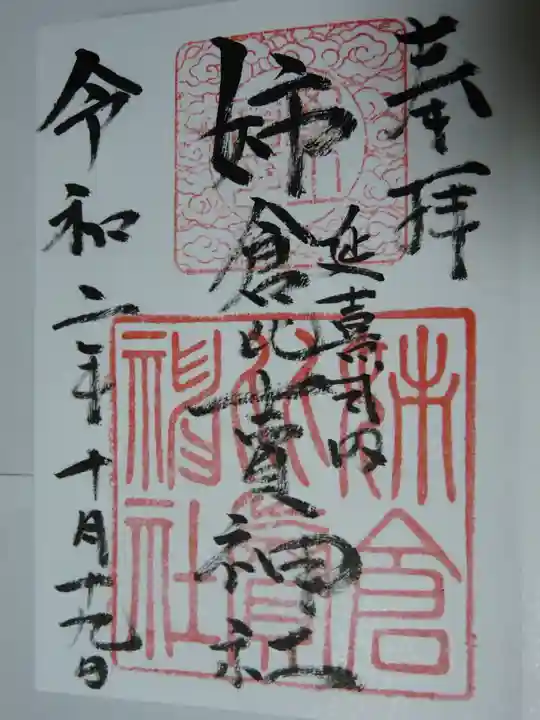 奉拝
延喜式内
姉倉比賣神社
令和二年十月十九日
姉倉比賣神社